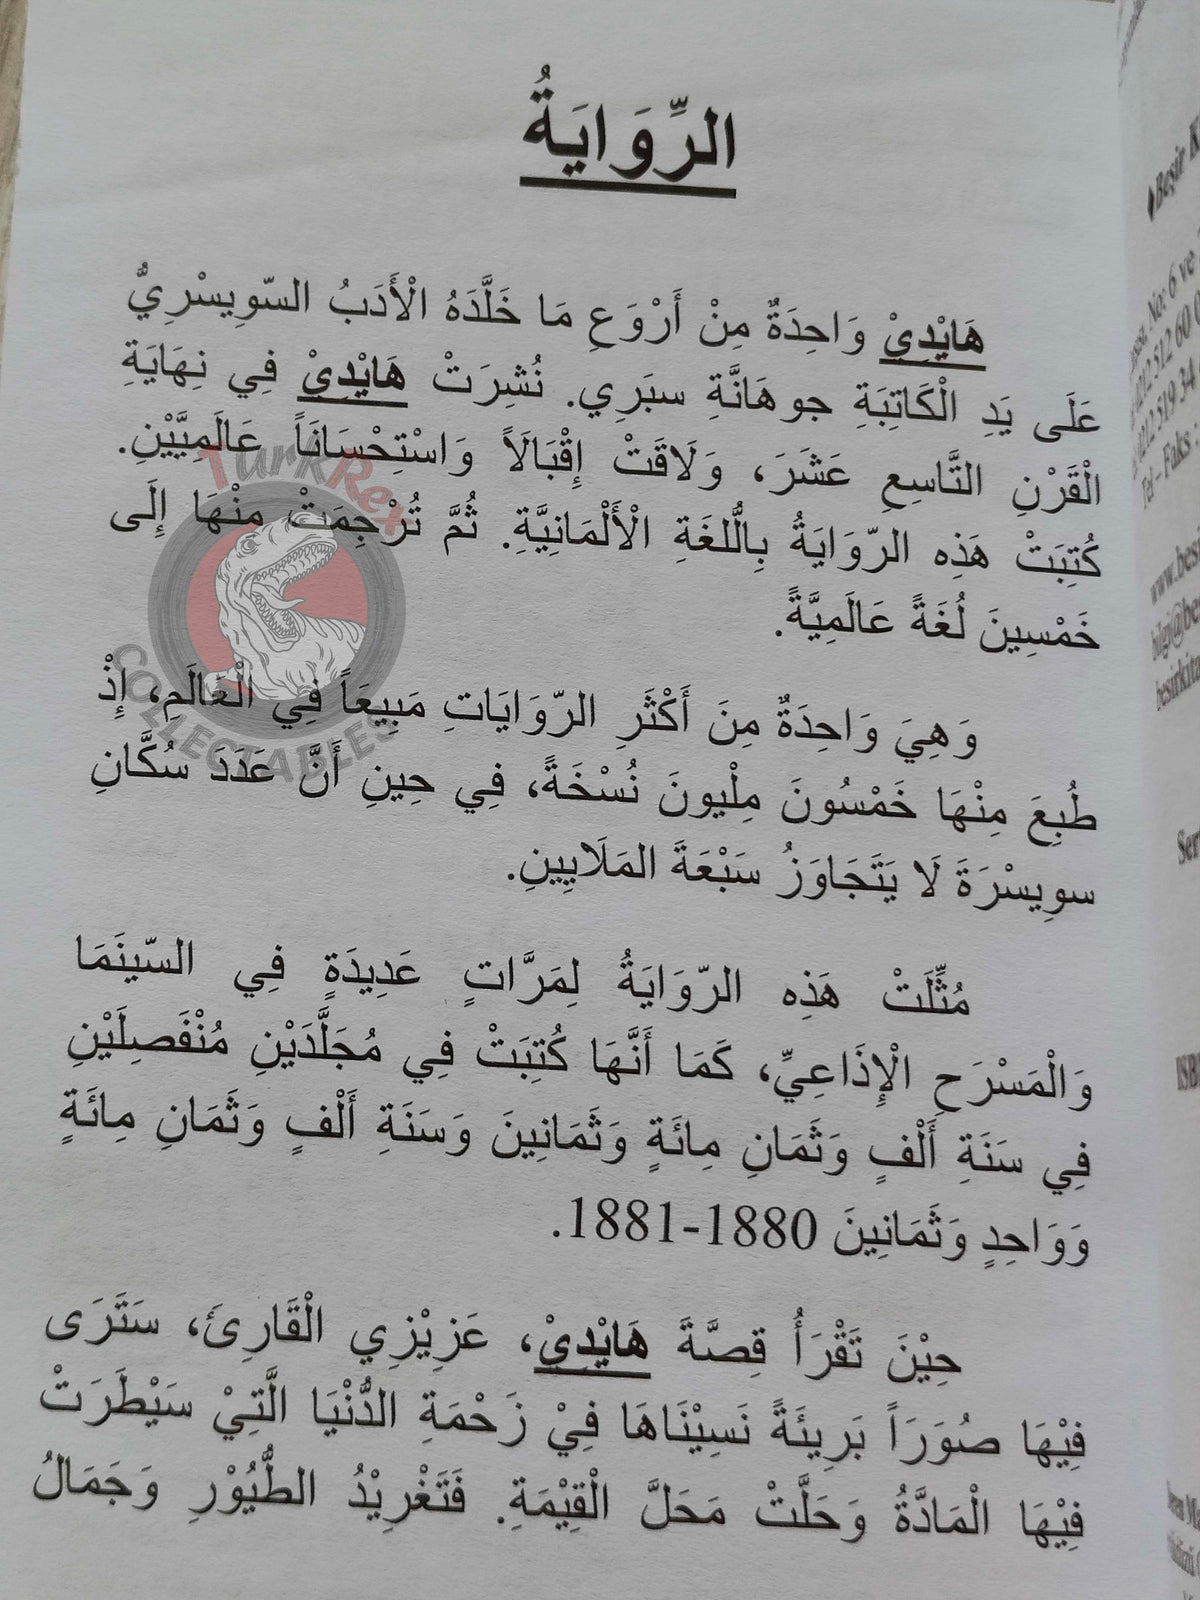 الرِّوَايَةُ
هَايْدِيْ وَاحِدَةٌ مِنْ أَرْوَعِ مَا خَلَّدَهُ الْأَدَبُ السّوِيسْرِيُّ
عَلَى يَدِ الْكَاتِبَةِ جوهَانَّةِ سبَرِي. نُشِرَتْ هَايْدِيْ فِي نِهَايَةِ
الْقَرْنِ التَّاسِعِ عَشَرَ، وَلَاقَتْ إِقْبَالَاً وَاسْتِحْسَانَاً عَالَمِيَّيْنِ.
كُتِبَتْ هَذِه الرّوَايَةُ بِاللُّغَةِ الْأَلْمَانِيَّةِ. ثُمَّ تُرْجِمَتْ مِنْهَا إِلَى
خَمْسِينَ لُغَةً عَالَمِيَّةً.
وَهِيَ وَاحِدَةٌ مِنَ أَكْثَرِ الرّوَايَاتِ مَبِيعَاً فِي الْعَالَمِ، إِذْ
طُبِعَ مِنْهَا خَمْسُونَ مِلْيونَ نُسْخَةً، فِي حِينِ أَنَّ عَدَدَ سُكَّانِ
سوِيسْرَةَ لَا يَتَجَاوَزُ سَبْعَةَ المَلَايِينِ.
مُثِّلَتْ هَذِه الرّوَايَةُ لِمَرَّاتٍ عَدِيدَةٍ فِي السّينَمَا
وَالْمَسْرَحِ الْإِذَاعِيِّ، كَمَا أَنَّهَا كُتِبَتْ فِي مُجَلَّدَيْنِ مُنْفَصِلَيْنِ
فِي سَنَةِ أَلْفٍ وَثَمَانِ مِائَةٍ وَثَمَانِينَ وَسَنَةِ أَلْفٍ وَثَمَانِ مِائَةٍ
وَوَاحِدٍ وَثَمَانِينَ 1880-1881.
حِيْنَ تَقْرَأُ قِصَّةَ هَايْدِيْ، عَزِيْزِي الْقَارِئَ، سَتَرَى
فِيْهَا صُوَرَاً بَرِيئَةً نَسِيْنَاهَا فِيْ زَحْمَةِ الدُّنْيَا الَّتِيْ سَيْطَرَتْ
فِيْهَا الْمَادَّةُ وَحَلَّتْ مَحَلَّ الْقِيْمَةِ. فَتَغْرِيْدُ الطُّيُوْرِ وَجَمَالُ
TurkRex
COLLECTABLES
No: 6 ve
0212 512 60
0212 519 34
Tel - Faks :
ISB